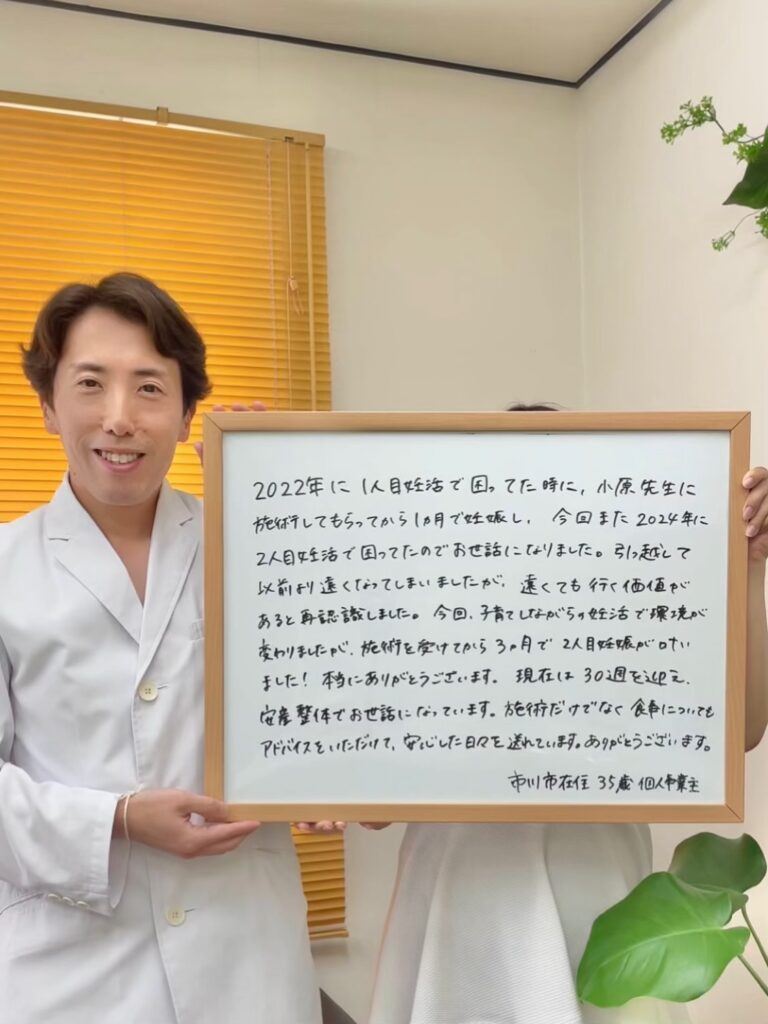 2022年に1人目妊活で困ってた時に、小原先生に
施術してもらってから1ヵ月で妊娠し、今回また2024年に
2人目妊活で困ってたのでお世話になりました。引っ越して
以前より遠くなってしまいましたが、遠くても行く価値が
あると再認識しました。今回、子育てしながらの妊活で環境が
変わりましたが、施術を受けてから3ヵ月で2人目妊娠が叶い
ました!本当にありがとうございます。現在は30週を迎え、
安産整体でお世話になっています。施術だけでなく食事についても
アドバイスをいただけて、安心した日々を送れています。ありがとうございます。
市川市在住 35歳 個人事業主